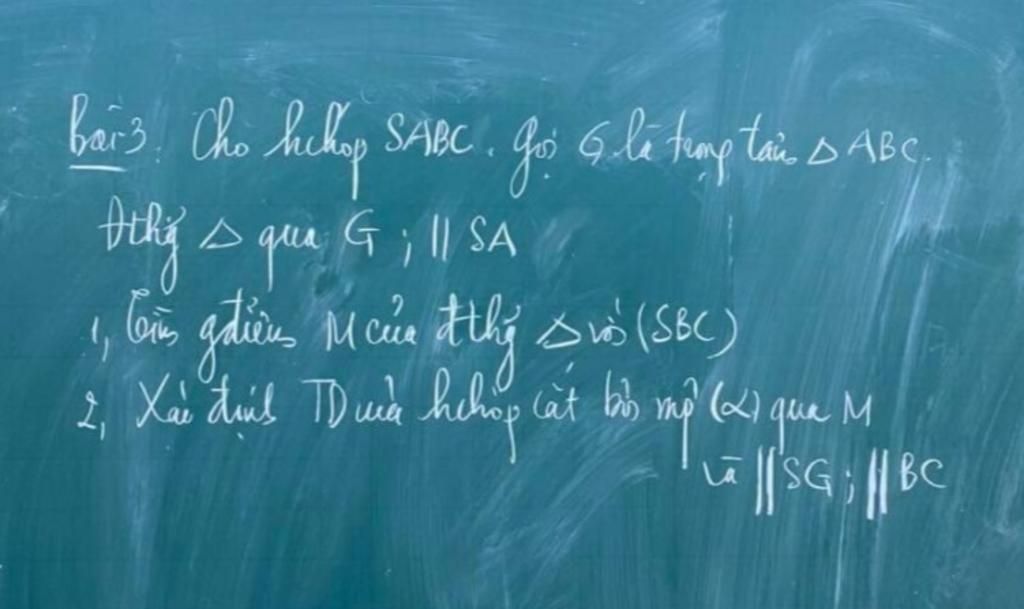 Bài 3. Cho hchóp SABC. gọi G là trọng tâm △ ABC.
Đthẳg △ qua G ; || SA
1, Tìm gđiểm M của đthẳg △ với (SBC)
2, Xác định TD của hchóp cắt bởi mp (α) qua M
và || SG ; || BC